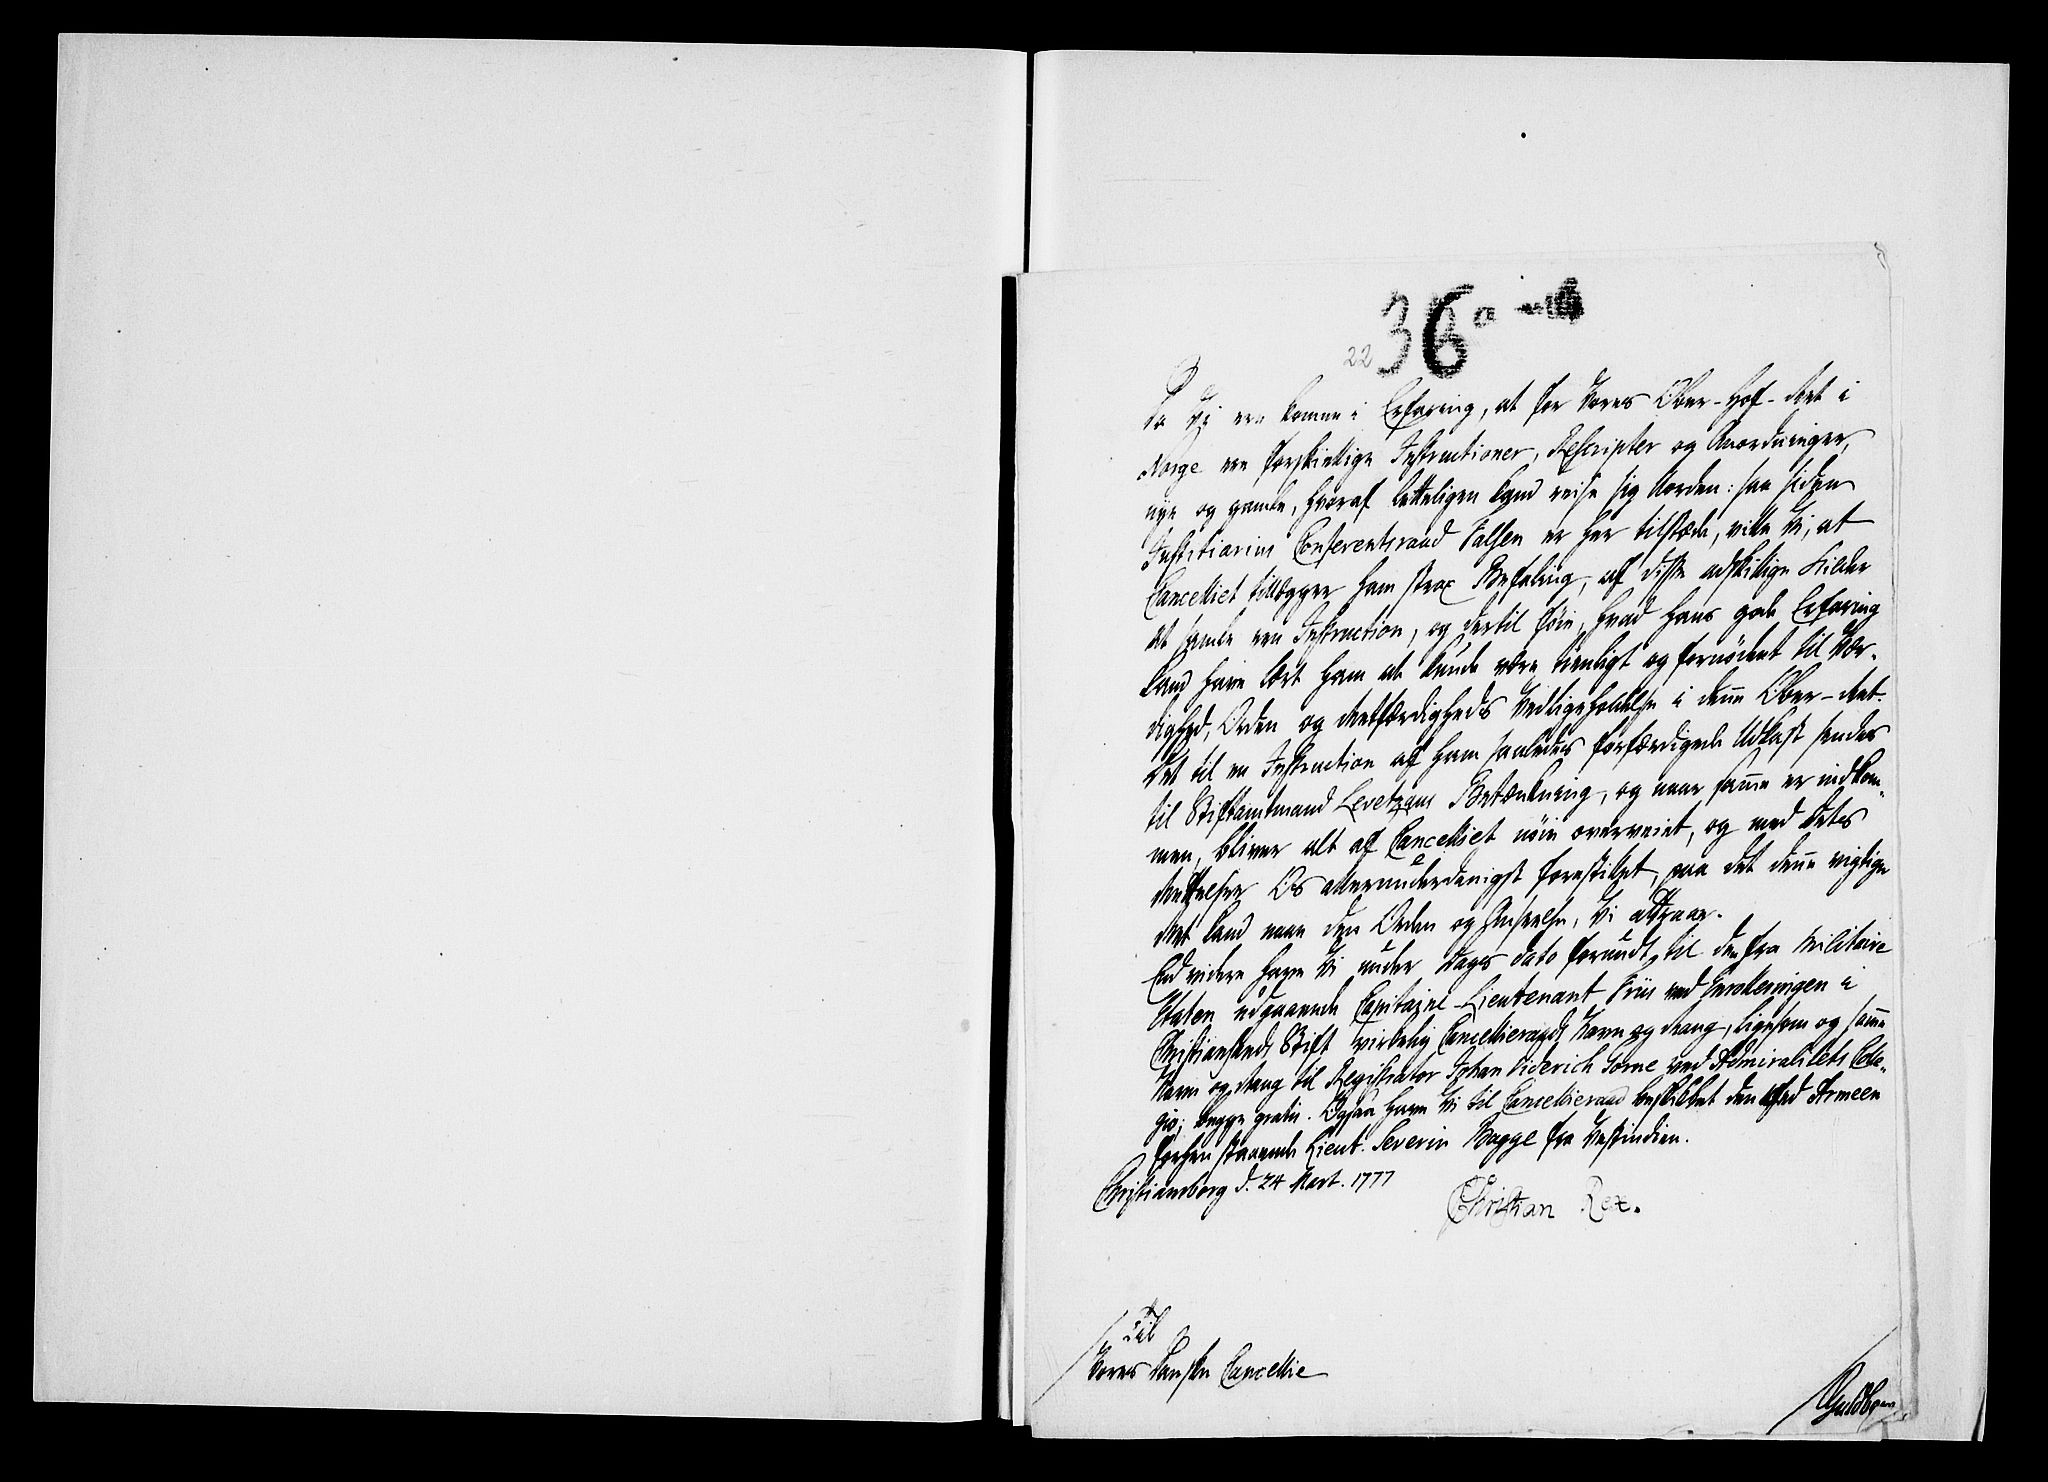 36 a
22
Da Vi ere komne i Erfaring, at for Vores Ober-Hof-Ret i
Norge ere forskiellige Instructioner, Rescripter og Anordninger,
nye og gamle, hvoraf letteligen kand reise sig Uorden: saa siden
Justitiarius Conferentsraad Falsen er her tilstæde, ville Vi, at
Cancelliet tillægger ham strax Befaling, af disse adskillige Kilder
at samle een Instruction, og dertil føie, hvad hans gode Erfaring
kand have lært ham at kunde være tienligt og fornødent til Vær-
dighed, Orden og Retfærdigheds Vedligeholdelse i denne Ober-Ret.
Det til en Instruction af ham saaledes forfærdigede Udkast sendes
til Stiftamtmand Levetzaus Betænkning, og naar samme er indkom-
men, bliver alt af Cancelliet nøie overveiet, og med dets
Rettelser Os allerunderdanigst forestillet, paa det denne vigtige
Ret kand naae den Orden og Anseelse, Vi attraae.
End videre have Vi under Dags dato forundt til den fra Militaire
Etaten udgaaende Capitaine-Lieutenant Friis ved Enrolleringen i
Christiansands Stift virkelig Cancellieraads Navn og Rang, ligesom og samme
Navn og Rang til Registrator Johan Diderich Torne ved Admiralitets Colle-
gio; begge gratis. Ogsaa have Vi til Cancellieraad beskikket den ved Armeen
forhen staaende Lieut. Severin Bagge fra Vestindien.
Christiansborg d. 24 Mart. 1777
Christian Rex.
Til
Vores Danske Cancellie
Guldberg